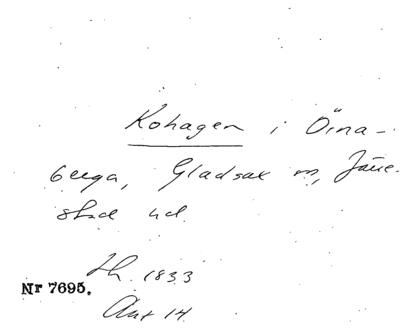 Kohagen i Öina-
berga, Gladsax sn, Järre-
stad hd.
Lh. 1833
Nr 7695.
Akt 14